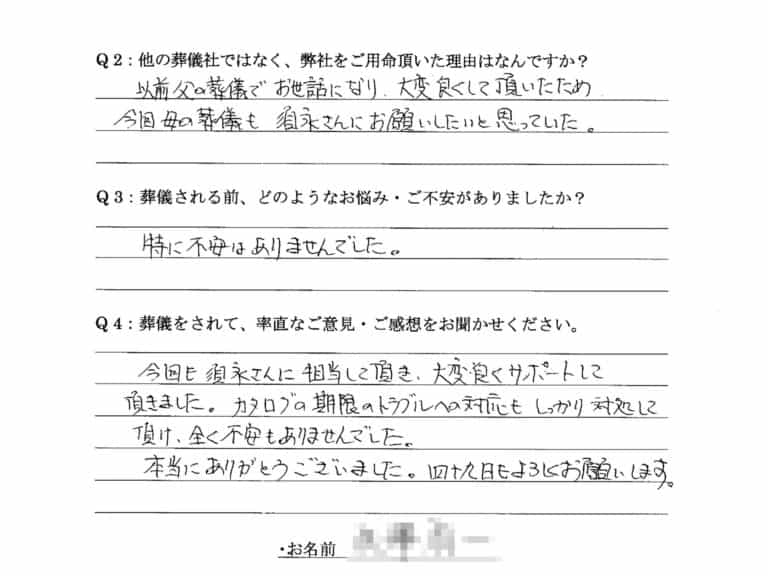 Q2:他の葬儀社ではなく、弊社をご用命頂いた理由はなんですか?
以前父の葬儀でお世話になり、大変良くして頂いたため
今回母の葬儀も須永さんにお願いしたいと思っていた。
Q3:葬儀される前、どのようなお悩み・ご不安がありましたか?
特に不安はありませんでした。
Q4:葬儀をされて、率直なご意見・ご感想をお聞かせください。
今回も須永さんに担当して頂き、大変良くサポートして
頂きました。カタログの期限のトラブルへの対応もしっかり対処して
頂け、全く不安もありませんでした。
本当にありがとうございました。四十九日もよろしくお願いします。
・お名前